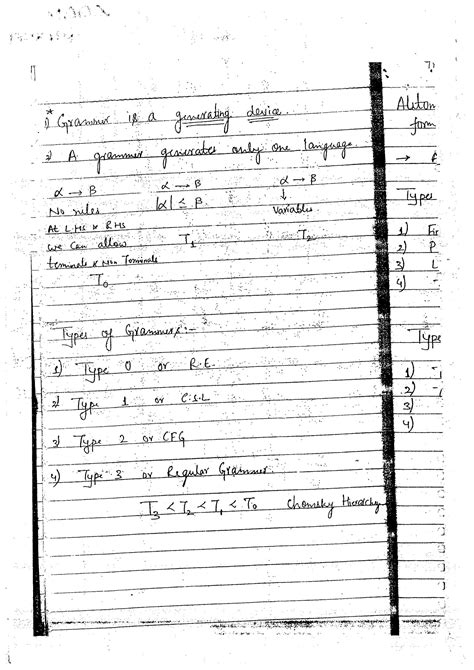 1) * Grammer is a generating device.
2) A grammer generates only one language.
α → β   α → β   α → β
No rules   |α| ≤ β   ↓
At LHS & RHS   Variables
we can allow   T1   T2
terminals & Non Terminals
T0
Types of Grammers :-
1) Type 0 or R.E.
2) Type 1 or C.S.L
3) Type 2 or CFG
4) Type 3 or Regular Grammer
T3 < T2 < T1 < T0   Chomsky Hierarchy
form
→
Types
1)
2) P
3) L
4)
Type
1)
2)
3)
4)